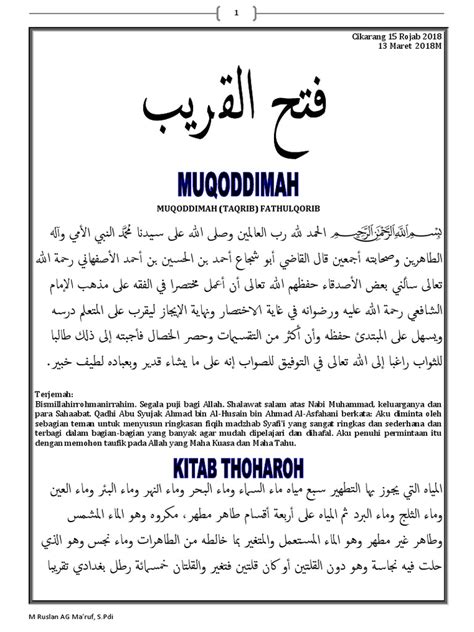 1
Cikarang 15 Rojab 2018
13 Maret 2018M
فتح القريب
MUQODDIMAH
MUQODDIMAH (TAQRIB) FATHULQORIB
بسم الله الرحمن الرحيم الحمد لله رب العالمين وصلى الله على سيدنا محمد النبي الأمي وآله
الطاهرين وصحابته أجمعين قال القاضي أبو شجاع أحمد بن الحسين بن أحمد الأصفهاني رحمة الله
تعالى سألني بعض الأصدقاء حفظهم الله تعالى أن أعمل مختصرا في الفقه على مذهب الإمام
الشافعي رحمة الله عليه ورضوانه في غاية الاختصار ونهاية الإيجاز ليقرب على المتعلم درسه
ويسهل على المبتدئ حفظه وأن أكثر من التقسيمات وحصر الخصال فأجبته إلى ذلك طالبا
للثواب راغبا إلى الله تعالى في التوفيق للصواب إنه على ما يشاء قدير وبعباده لطيف خبير.
Terjemah:
Bismillahirrohmanirrahim. Segala puji bagi Allah. Shalawat salam atas Nabi Muhammad, keluarganya dan
para Sahaabat. Qadhi Abu Syujak Ahmad bin Al-Husain bin Ahmad Al-Asfahani berkata: Aku diminta oleh
sebagian teman untuk menyusun ringkasan fiqih madzhab Syafi'i yang sangat ringkas dan sederhana dan
terbagi dalam bagian-bagian yang banyak agar mudah dipelajari dan dihafal. Aku penuhi permintaan itu
dengan memohon taufik pada Allah yang Maha Kuasa dan Maha Tahu.
KITAB THOHAROH
المياه التي يجوز بها التطهير سبع مياه ماء السماء وماء البحر وماء النهر وماء البئر وماء العين
وماء الثلج وماء البرد ثم المياه على أربعة أقسام طاهر مطهر ، مكروه وهو الماء المشمس
وطاهر غير مطهر وهو الماء المستعمل والمتغير بما خالطه من الطاهرات وماء نجس وهو الذي
حلت فيه نجاسة وهو دون القلتين أو كان قلتين فتغير والقلتان خمسمائة رطل بغدادي تقريبا
M Ruslan AG Ma'ruf, S.Pdi